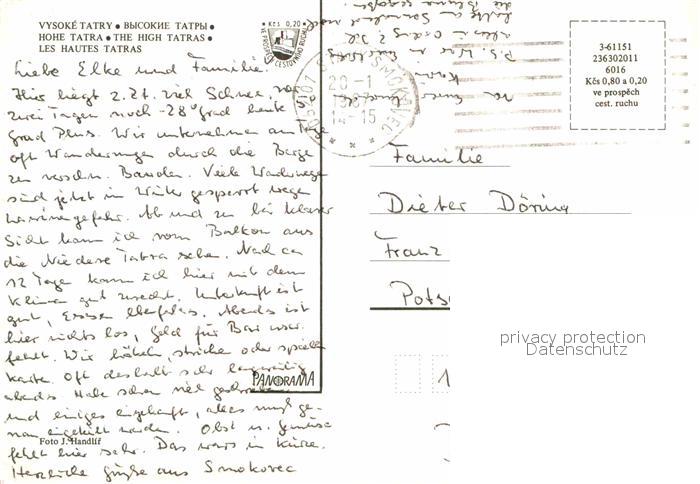 VYSOKÉ TATRY • ВЫСОКИЕ ТАТРЫ •
HOHE TATRA • THE HIGH TATRAS •
LES HAUTES TATRAS
Kčs 0,20
VE PROSPĚCH CESTOVNÍHO RUCHU
Liebe Elke und Familie.
Hier liegt z. Zt. viel Schnee, vor
zwei Tagen noch -28 Grad heute 
Grad Plus. Wir unternehmen am Tage
oft Wanderungen durch die Berge
zu versch. Bauden. Viele Wanderwege
sind jetzt im Winter gesperrt wegen
Lawinengefahr. Ab und zu bei klarer
Sicht kann ich vom Balkon aus
die Niedere Tatra sehen. Nach ca
12 Tagen kam ich hier mit dem
Klima gut zurecht. Unterkunft ist
gut, Essen ebenfalls. Abends ist
hier nichts los, Geld für Bar usw.
fehlt. Wir häkeln, stricke oder spielen
Karte. Oft deshalb sehr langweilig
abends. Habe schon viel geschrieben
und einiges eingekauft, alles muß ge-
nau eingeteilt werden. Obst u. Gemüse
fehlt hier sehr. Das wars in Kürze.
Herzliche Grüße aus Smokovec
PANORAMA
Foto J. Handlíř
SMOKOVEC
14-15
3-61151
236302011
6016
Kčs 0,80 a 0,20
ve prospěch
cest. ruchu
Familie
Dieter Döring
Franz
Pots
1
privacy protection
Datenschutz